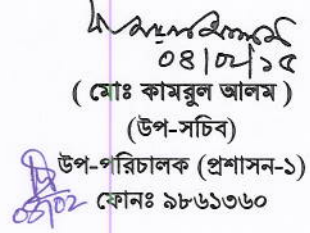 ০৪|০২|১৫
( মোঃ কামরুল আলম )
(উপ-সচিব)
উপ-পরিচালক (প্রশাসন-১)
০৪/০২ ফোনঃ ৯৮৬১৩৬০